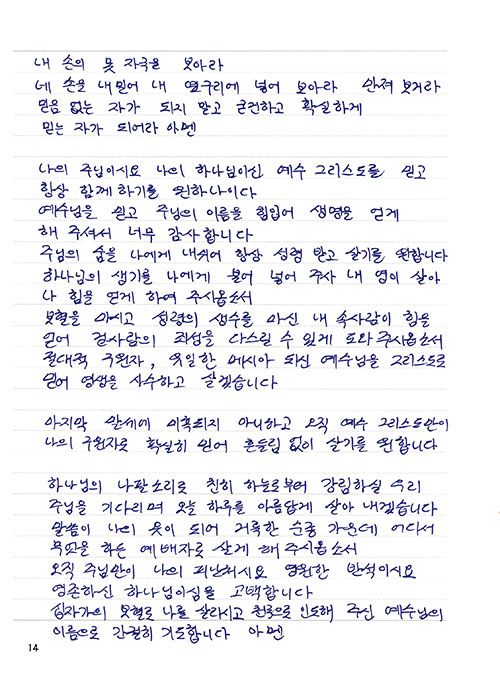 내 손의 못 자국을 보아라
네 손을 내밀어 내 옆구리에 넣어 보아라 만져 보거라
믿음 없는 자가 되지 말고 굳건하고 확실하게
믿는 자가 되어라 아멘
나의 주님이시요 나의 하나님이신 예수 그리스도를 믿고
항상 함께 하기를 원하나이다
예수님을 믿고 주님의 이름을 힘입어 생명을 얻게
해 주셔서 너무 감사합니다
주님의 숨을 나에게 내쉬어 항상 성령 받고 살기를 원합니다
하나님의 생기를 나에게 불어 넣어 주사 내 영이 살아
나 힘을 얻게 하여 주시옵소서
보혈을 마시고 성령의 생수를 마신 내 속사람이 힘을
얻어 겉사람의 죄성을 다스릴 수 있게 도와 주시옵소서
절대적 구원자, 유일한 메시아 되신 예수님을 그리스도로
믿어 영생을 사수하고 살겠습니다
마지막 말세에 미혹되지 아니하고 오직 예수 그리스도만이
나의 구원자로 확실히 믿어 흔들림 없이 살기를 원합니다
하나님의 나팔소리로 친히 하늘로부터 강림하실 우리
주님을 기다리며 오늘 하루를 아름답게 살아 내겠습니다
말씀이 나의 옷이 되어 거룩한 순종 가운데 어디서
무엇을 하든 예배자로 살게 해 주시옵소서
오직 주님만이 나의 피난처시요 영원한 반석이시요
영존하신 하나님이심을 고백합니다
십자가의 보혈로 나를 살리시고 천국으로 인도해 주신 예수님의
이름으로 간절히 기도합니다 아멘
14